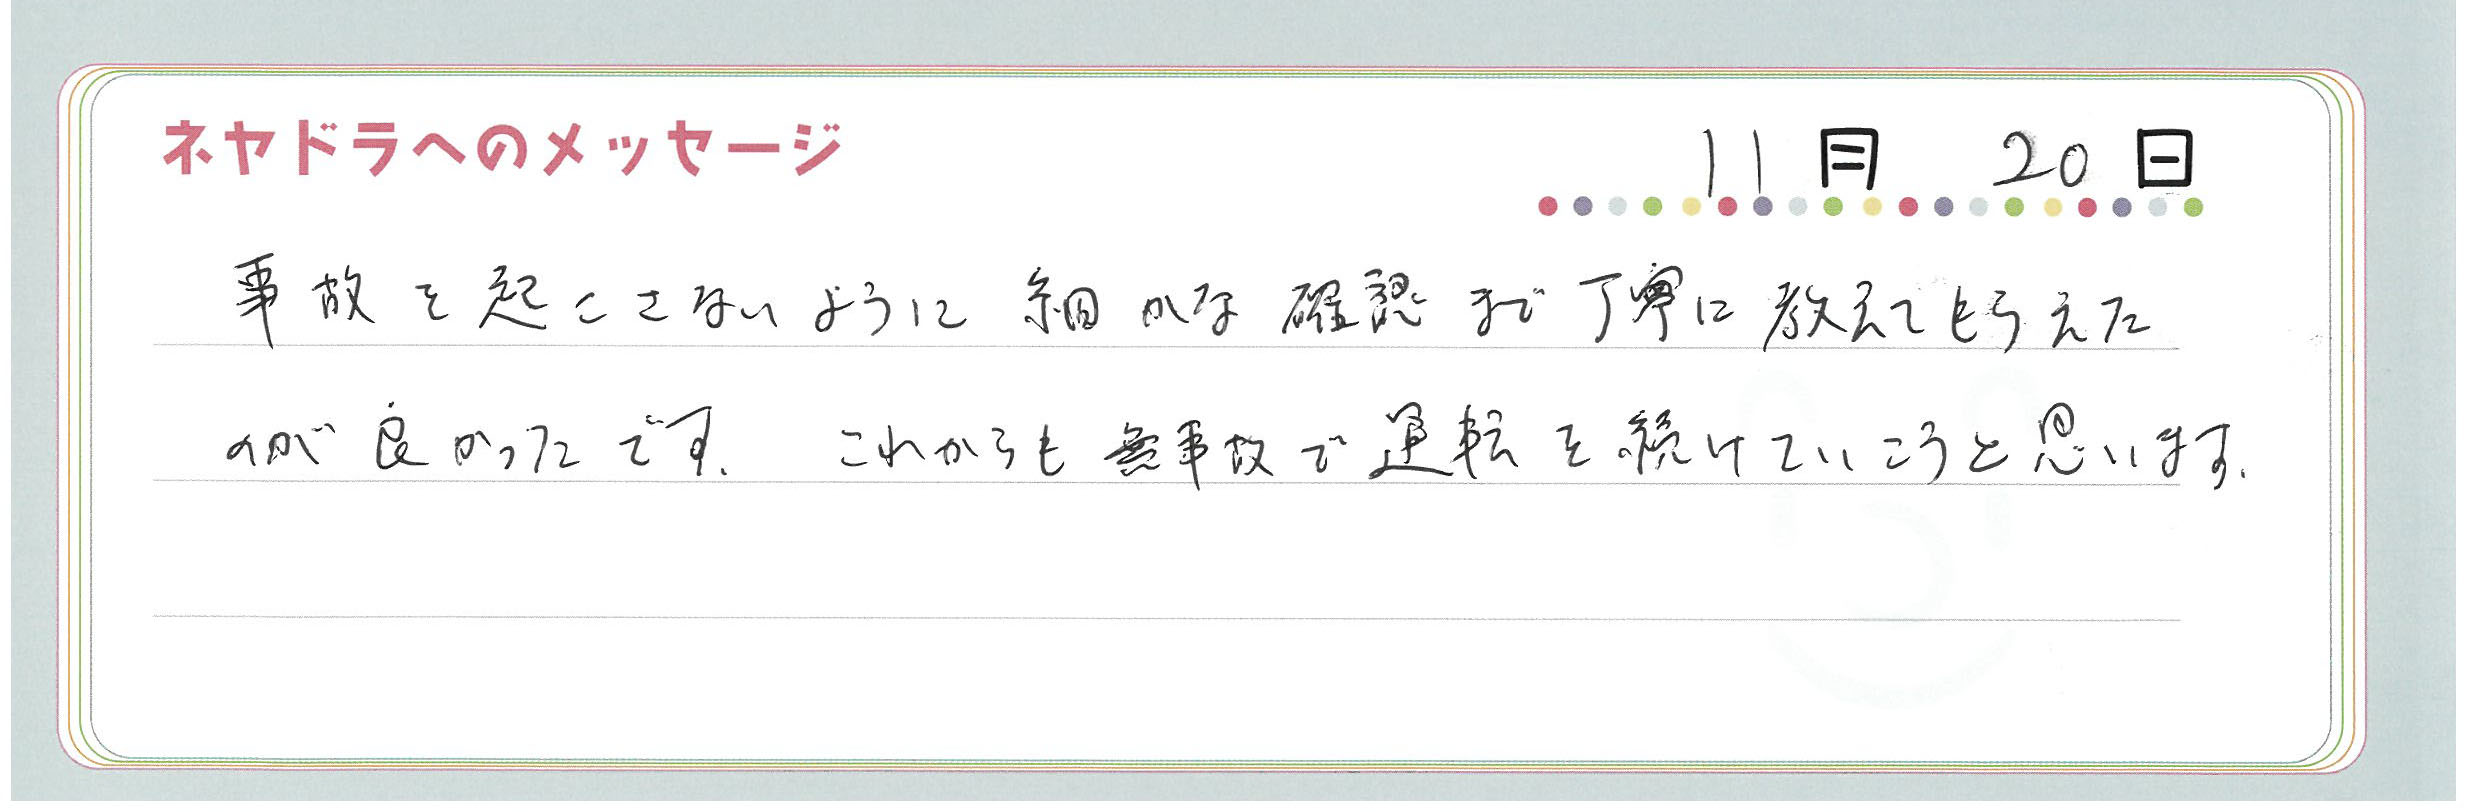 ネヤドラへのメッセージ
11月 20日
事故を起こさないように細かな確認まで丁寧に教えてもらえた
のが良かったです。これからも無事故で運転を続けていこうと思います。